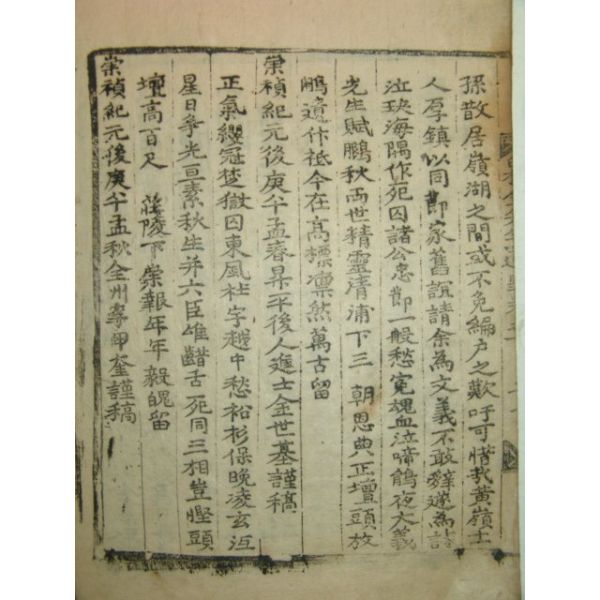 孫散居嶺湖之間或不免編戶之歎吁可惜哉黃嶺士
人李鎮以同郎家舊誼請余為文義不敢辭遂為詩
泣玦海隅作死囚諸公忠節一般愁冤魂血泣啼鵑夜大義
先生賦鵬秋兩世精靈清浦下三 朝恩典正壇頭放
鵬遺作祗今在高標凜然萬古留
崇禎紀元後庚午孟春昇平後人進士金世基謹稿
正氣纓冠楚獄囚東風杜宇越中愁松杉保晚凌玄沍
星日爭光亘素秋生并六臣雄齰舌死同三相豈慳頭
壇高百尺 莊陵下崇報年年毅魄留
崇禎紀元後庚午孟秋全州李甲奎謹稿